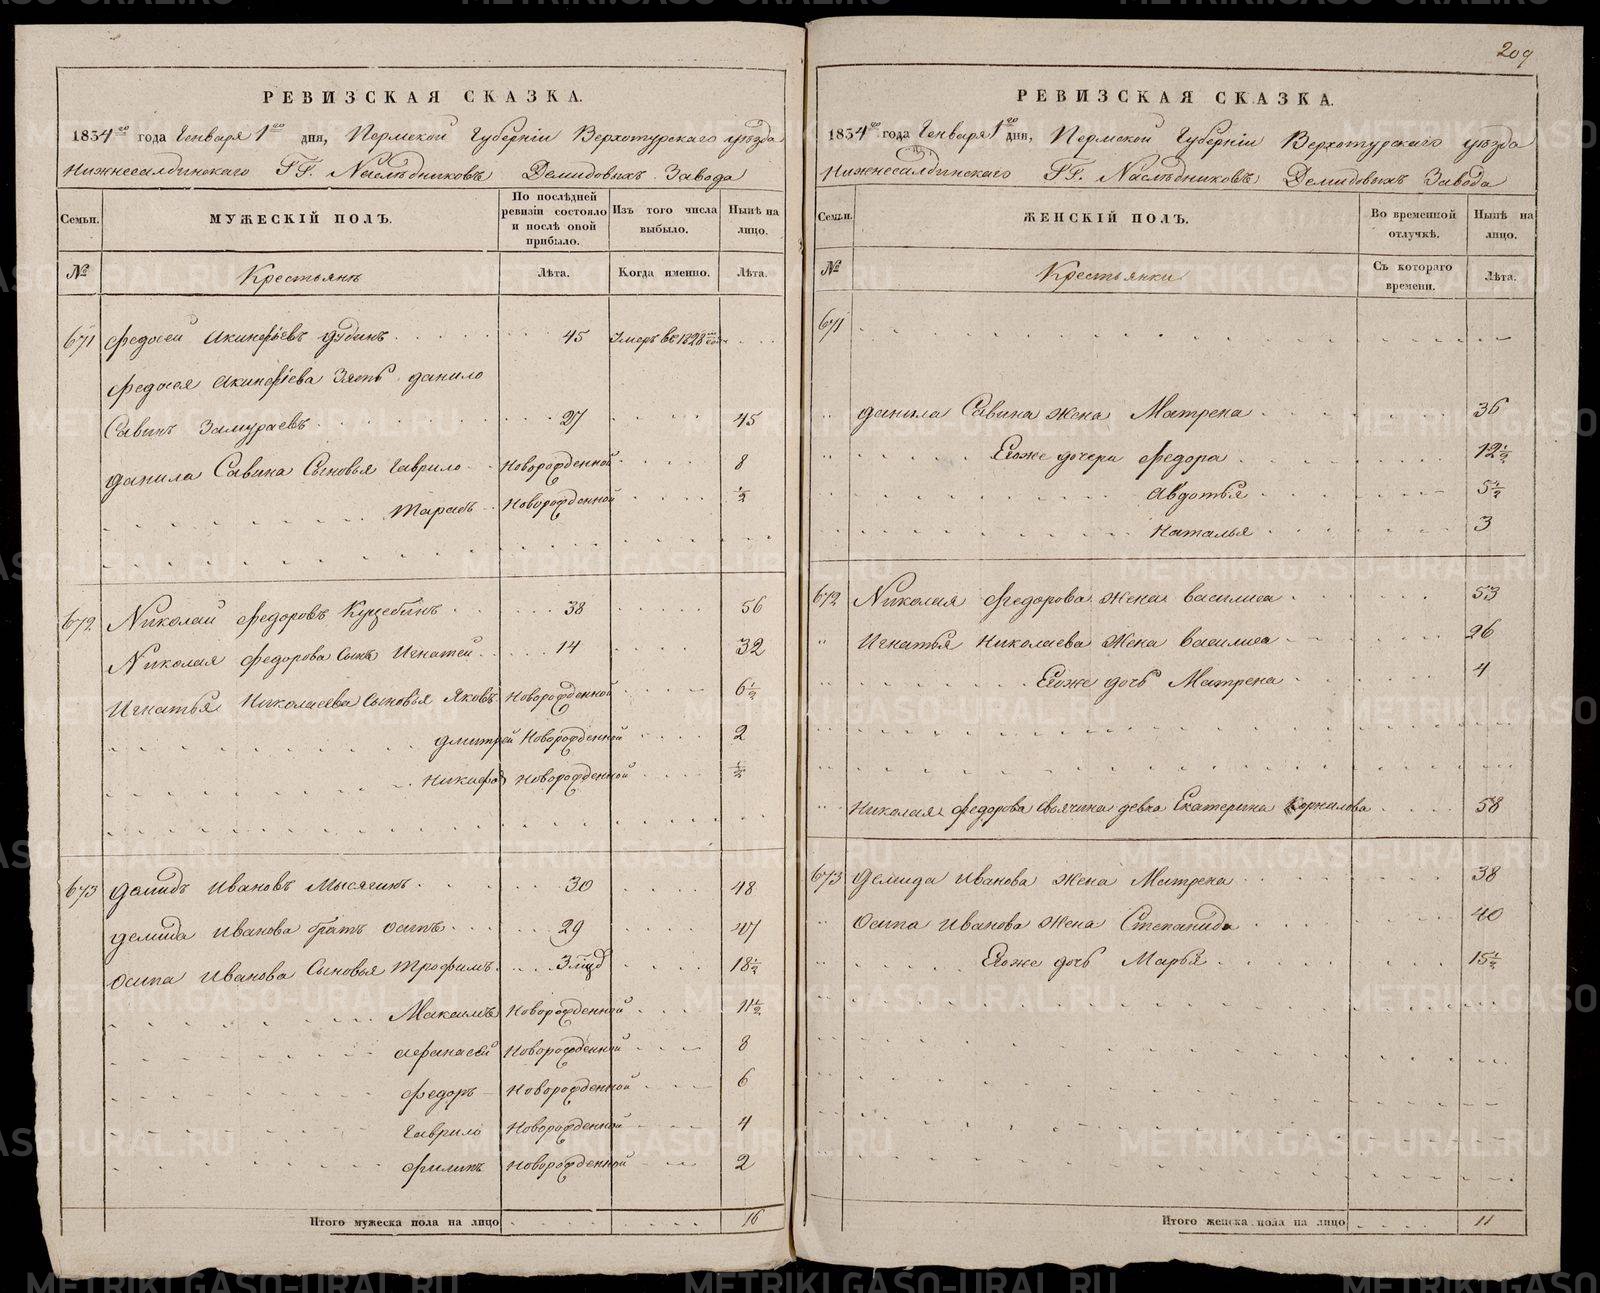 209
РЕВИЗСКАЯ СКАЗКА.
1834го года Генваря 1го дня, Пермской Губернiи Верхотурскаго уѣзда
Нижнесалдинскаго ГГ. Наслѣдниковъ Демидовыхъ Завода
Семьи. МУЖЕСКIЙ ПОЛЪ. По послѣдней ревизiи состояло и послѣ оной прибыло. Изъ того числа выбыло. Нынѣ на лицо.
№ Крестьянъ Лѣта. Когда именно. Лѣта.
671 Федосей Акинфiевъ Дубинъ 45 Умеръ въ 1828
Федосея Акинфiева Зять Данило
Савинъ Замураевъ 27 45
Данила Савина Сыновья Гаврило Новорожденной 8
Тарасъ Новорожденной ½
672 Николай Федоровъ 38 56
Николая Федорова Сынъ Игнатей 14 32
Игнатья Николаева Сыновья Яковъ Новорожденной 6½
Дмитрей Новорожденной 2
Никифоръ Новорожденной ½
673 Демидъ Ивановъ Мысягинъ 30 48
Демида Иванова братъ Осипъ 29 47
Осипа Иванова Сыновья Трофимъ 3 мцд 18½
Максимъ Новорожденной 11½
Афанасей Новорожденной 8
Федоръ Новорожденной 6
Гаврило Новорожденной 4
Филипъ Новорожденной 2
Итого мужеска пола на лицо 16
РЕВИЗСКАЯ СКАЗКА.
1834го года Генваря 1го дня, Пермской Губернiи Верхотурскаго уѣзда
Нижнесалдинскаго ГГ. Наслѣдниковъ Демидовыхъ Завода
Семьи. ЖЕНСКIЙ ПОЛЪ. Во временной отлучкѣ. Нынѣ на лицо.
№ Крестьянки Съ котораго времени. Лѣта.
671
Данила Савина жена Матрена 36
Егоже дочери Федора 12½
Авдотья 5½
Наталья 3
672 Николая Федорова жена Василиса 53
Игнатья Николаева жена Василиса 26
Егоже дочь Матрена 4
Николая Федорова своячина девка Екатерина Корнилова 58
673 Демида Иванова жена Матрена 38
Осипа Иванова жена Степанида 40
Егоже дочь Марья 15½
Итого женска пола на лицо 11
METRIKI.GASO-URAL.RU